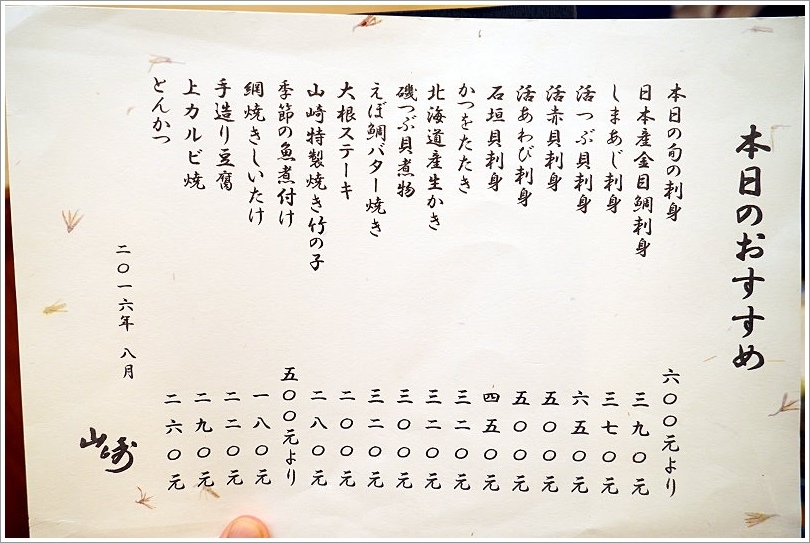 本日のおすすめ
本日の旬の刺身 六〇〇元より
日本産金目鯛刺身 三九〇元
しまあじ刺身 三七〇元
活つぶ貝刺身 六五〇元
活赤貝刺身 五〇〇元
活あわび刺身 五〇〇元
石垣貝刺身 四五〇元
かつをたたき 三二〇元
北海道産生かき 三二〇元
磯つぶ貝煮物 三〇〇元
えぼ鯛バター焼き 三二〇元
大根ステーキ 二〇〇元
山崎特製焼き竹の子 二八〇元
季節の魚煮付け 五〇〇元より
網焼きしいたけ 一八〇元
手造り豆腐 二二〇元
上カルビ焼 二九〇元
とんかつ 二六〇元
二〇一六年 八月
山崎